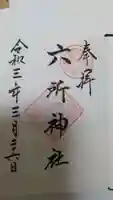 奉拝
六所神社
令和三年三月二六日